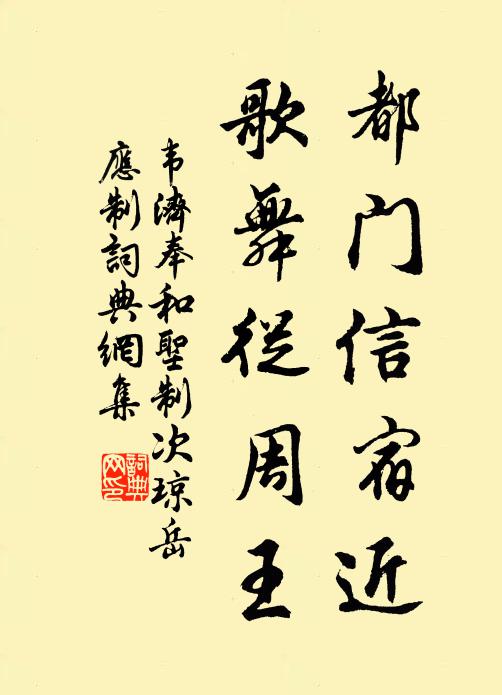 都门信宿近
歌舞從周王
韦濟奉和聖制次琼岳
應制詞典網集
詞典
网印